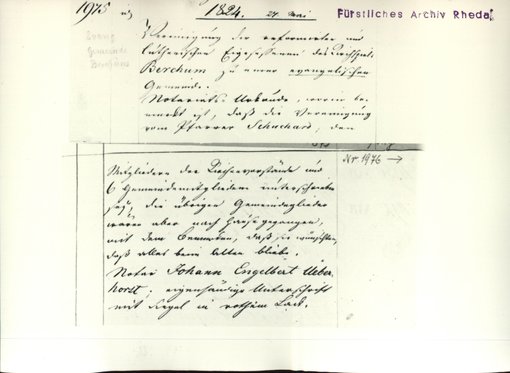 1975 1824. 27 Mai Fürstliches Archiv Rheda
Evang
Gemeinde
Berchum
Vereinigung der reformirten und
lutherischen Eingesessenen des Kirchspiels
Berchum zu einer evangelischen
Gemeinde.
Notariats-Urkunde, worin be-
merkt ist, daß die Vereinigung
vom Pfarrer Schuchard, den
Nr 1976 →
Mitgliedern der Kirchenvorstände und
6 Gemeindemitgliedern unterschrieben
sey, die übrigen Gemeindeglieder
wären aber nach Hause gegangen,
mit dem Bemerken, daß sie wünschten,
daß alles beim Alten bliebe.
Notar Johann Engelbert Ueber-
horst; eigenhändige Unterschrift
mit Siegel in rothem Lack.